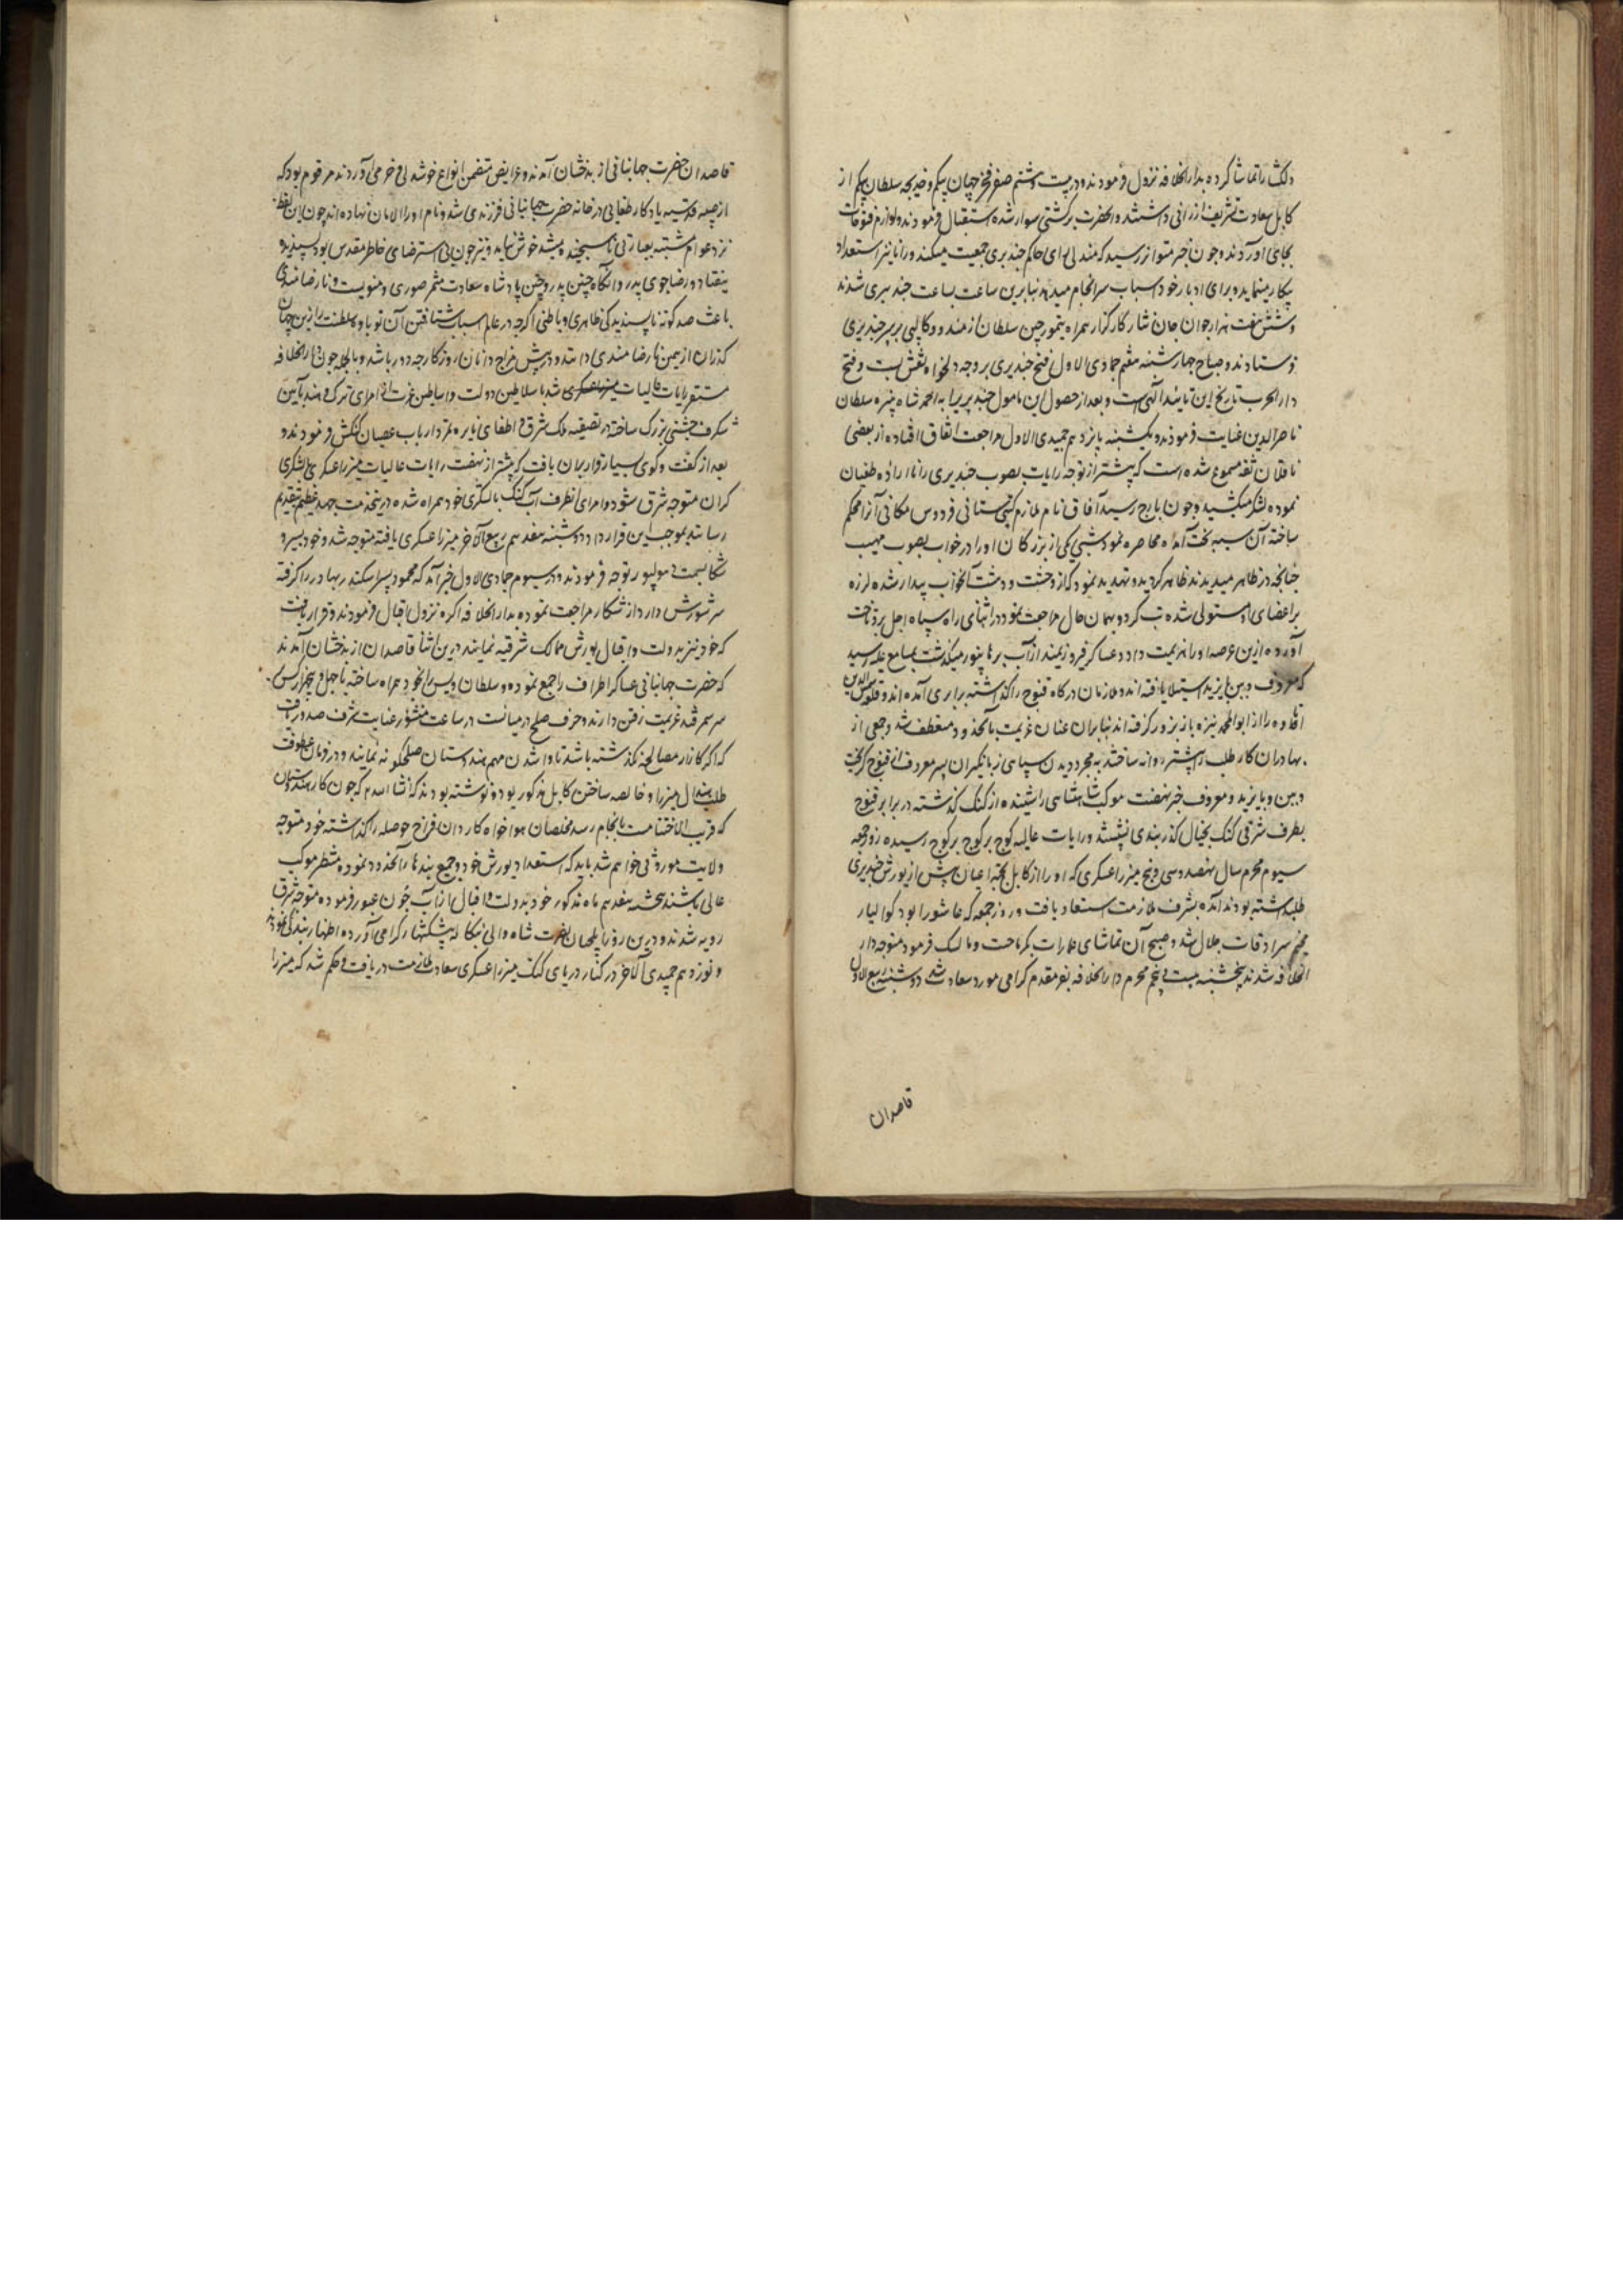 دلکشا را تماشا کرده بدار الخلافه نزول فرمودند و در بیست و هشتم صفر فخر جهان بیکم و خدیجه سلطان بیکم از
کابل سعادت تشریف ارزانی داشتند و آنحضرت برکشتی سوار شده استقبال فرمودند و لوازم فتوحات
بجای آوردند و چون خبر متواتر رسید که مندلی رای حاکم چندیری جمعیت میکند و رانا نیز استعداد
پیکار مینماید و برای ادبار خود اسباب سرانجام میدهد بنابرین ساعت بساعت چندیری شدند
و شش هفت هزار جوان جان نثار کارکزار همراه چین تیمور سلطان از حدود کالپی بر سر چندیری
فرستادند و صباح چهارشنبه هفتم جمادی الاول فتح چندیری بر وجه دلخواه نقش بست و فتح
دار الحرب تاریخ این تایید الهی است و بعد از حصول این مامول چندیری را به احمد شاه نبیره سلطان
ناصر الدین عنایت فرمودند و یکشنبه یازدهم جمیدی الاول مراجعت اتفاق افتاده از بعضی
ناقلان ثقه مسموع شده است که پیشتر از توجه رایات بصوب چندیری رانا اراده طغیان
نموده لشکر میکشید و چون بایرج رسید آفاق نام ملازم کیتی ستانی فردوس مکانی آنرا محکم
ساخته آن سیه بخت آمده محاصره نمود شبی یکی از بزرکان او را در خواب بصورت مهیب
چنانچه در ظاهر میدیدند ظاهر کردید و تهدید نمود که از وحشت و دهشت آن خواب بیدار شده لرزه
بر اعضای او مستولی شده تب کرد و بهمان حال مراجعت نمود در اثنای راه سپاه اجل برو تاخت
آورده ازین عرصه او را هزیمت داد و عساکر فیروزیمند از آب برهانپور میکذشت بمسامع علیه رسید
که معروف و ببن و بایزید استیلا یافته اند و ملازمان درکاه قنوج را کذاشته برابری آمده اند و قلعه شمس آباد
را از ابوالمحمد نیزه باز بزور کرفته اند بنابران عنان عزیمت بآنحدود منعطف شد و جمعی از
بهادران کار طلب را پیشتر روانه ساختند بمجرد دیدن سپاهی زبانکیران پسر معروف از قنوج کریخت
و ببن و بایزید و معروف خبر نهضت موکب شاهنشاهی را شنیده از کنک کذشته در برابر قنوج
بطرف شرقی کنک بخیال کذر بندی نشستند و رایات عالیه کوچ بر کوچ رسیده روز جمعه
سیوم محرم سال نهصد و سی و پنج میرزا عسکری که او را از کابل پیش از یورش چندیری
طلب داشته بودند آمده بشرف ملازمت استسعاد یافت و روز جمعه که عاشورا بود کوالیار
مخیم سرادقات جلال شد و صبح آن تماشای عمارات بکرماجیت و مانسنک فرموده متوجه دار
الخلافه شدند پنجشنبه بیست و پنجم محرم دار الخلافه بفر مقدم کرامی مورد سعادت شد دوشنبه ربیع الاول
قاصدان
قاصدان حضرت جهانبانی از بدخشان آمدند و عرایض متضمن انواع خوشدلی و خرمی آوردند مرقوم بود که
از صبیه قدسیه یادکار طغایی در خانه حضرت جهانبانی فرزندی شد و نام او را الامان نهاده اند چون این لفظ
نزد عوام مشتبه بعبارتی ناسنجیده میشد خوش نیامد و نیز چون بی استرضای خاطر مقدس بود پسندیده
نیفتاد و رضاجوی پدر و آنکاه چنین پدر و چنین پادشاه سعادت مثمر صوری و معنویست و نارضامندی
باعث صد کونه ناپسندیدکی ظاهری و باطنی اکرچه در عالم اسباب شتافتن آن نوباوه سلطنت را ازین جهان
کذران از همین نارضامندی دانند و در پیش مزاج دانان روزکار چه دور باشد و بالجمله چون دار الخلافه
مستقر رایات عالیات شد با سلاطین دولت و اساطین عزت از امرای ترک و هند بآیین
شکرف جشنی بزرک ساخته در تصفیه ملک شرق و اطفای نایره تمرد ارباب عصیان کنکاش فرمودند و
بعد از کفت و کوی بسیار قرار بران یافت که پیشتر از نهضت رایات عالیات میرزا عسکری با لشکری
کران متوجه شرق شود و امرای آنطرف آب کنک با لشکرهای خود همراه شده در نخدمت جهد عظیم بتقدیم
رسانند بموجب این قرارداد دوشنبه هفدهم ربیع الآخر میرزا عسکری یافته متوجه شد و خود بسیر و
شکار بسمت دهولپور توجه فرمودند و در سیوم جمادی الاول خبر آمد که محمود پسر اسکندر بهار را کرفته
سر شورش دارد از شکار مراجعت نموده بدار الخلافه آکره نزول اقبال فرمودند و قرار یافت
که خود نیز بدولت و اقبال یورش ممالک شرقیه نمایند درین اثنا قاصدان از بدخشان آمدند
که حضرت جهانبانی عساکر اطراف را جمع نموده و سلطان ویس را بخود همراه ساخته با چهل و پنجهزار کس
بر سر سمرقند عزیمت رفتن دارند و حرف صلح در میانست در ساعت منشور عنایت شرف صدور یافت
که اکر کار از مصالحه نکذشته باشد تا وا شدن مهم هندوستان صلح کونه نمایند و در فرمان عطوفت
طلب هندال میرزا و خالصه ساختن کابل مذکور بود و نوشته بودند که انشاء الله چون کار هندوستان
که قریب الاختتامست بانجام رسد مخلصان هواخواه کاردان فراخ حوصله را کذاشته خود متوجه
ولایت موروثی خواهم شد باید که استعداد یورش خود و جمیع بندهای آنحدود نموده منتظر موکب
عالی باشند پنجشنبه هفدهم ماه مذکور خود بدولت و اقبال از آب جون عبور فرموده متوجه شرق
رویه شدند و درین روزها ایلچیان نصرت شاه والی بنکاله پیشکشهای کرامی آورده اظهار بندکی نمودند
و نوزدهم جمیدی الآخر در کنار دریای کنک میرزا عسکری سعادت ملازمت دریافت و حکم شد که میرزا